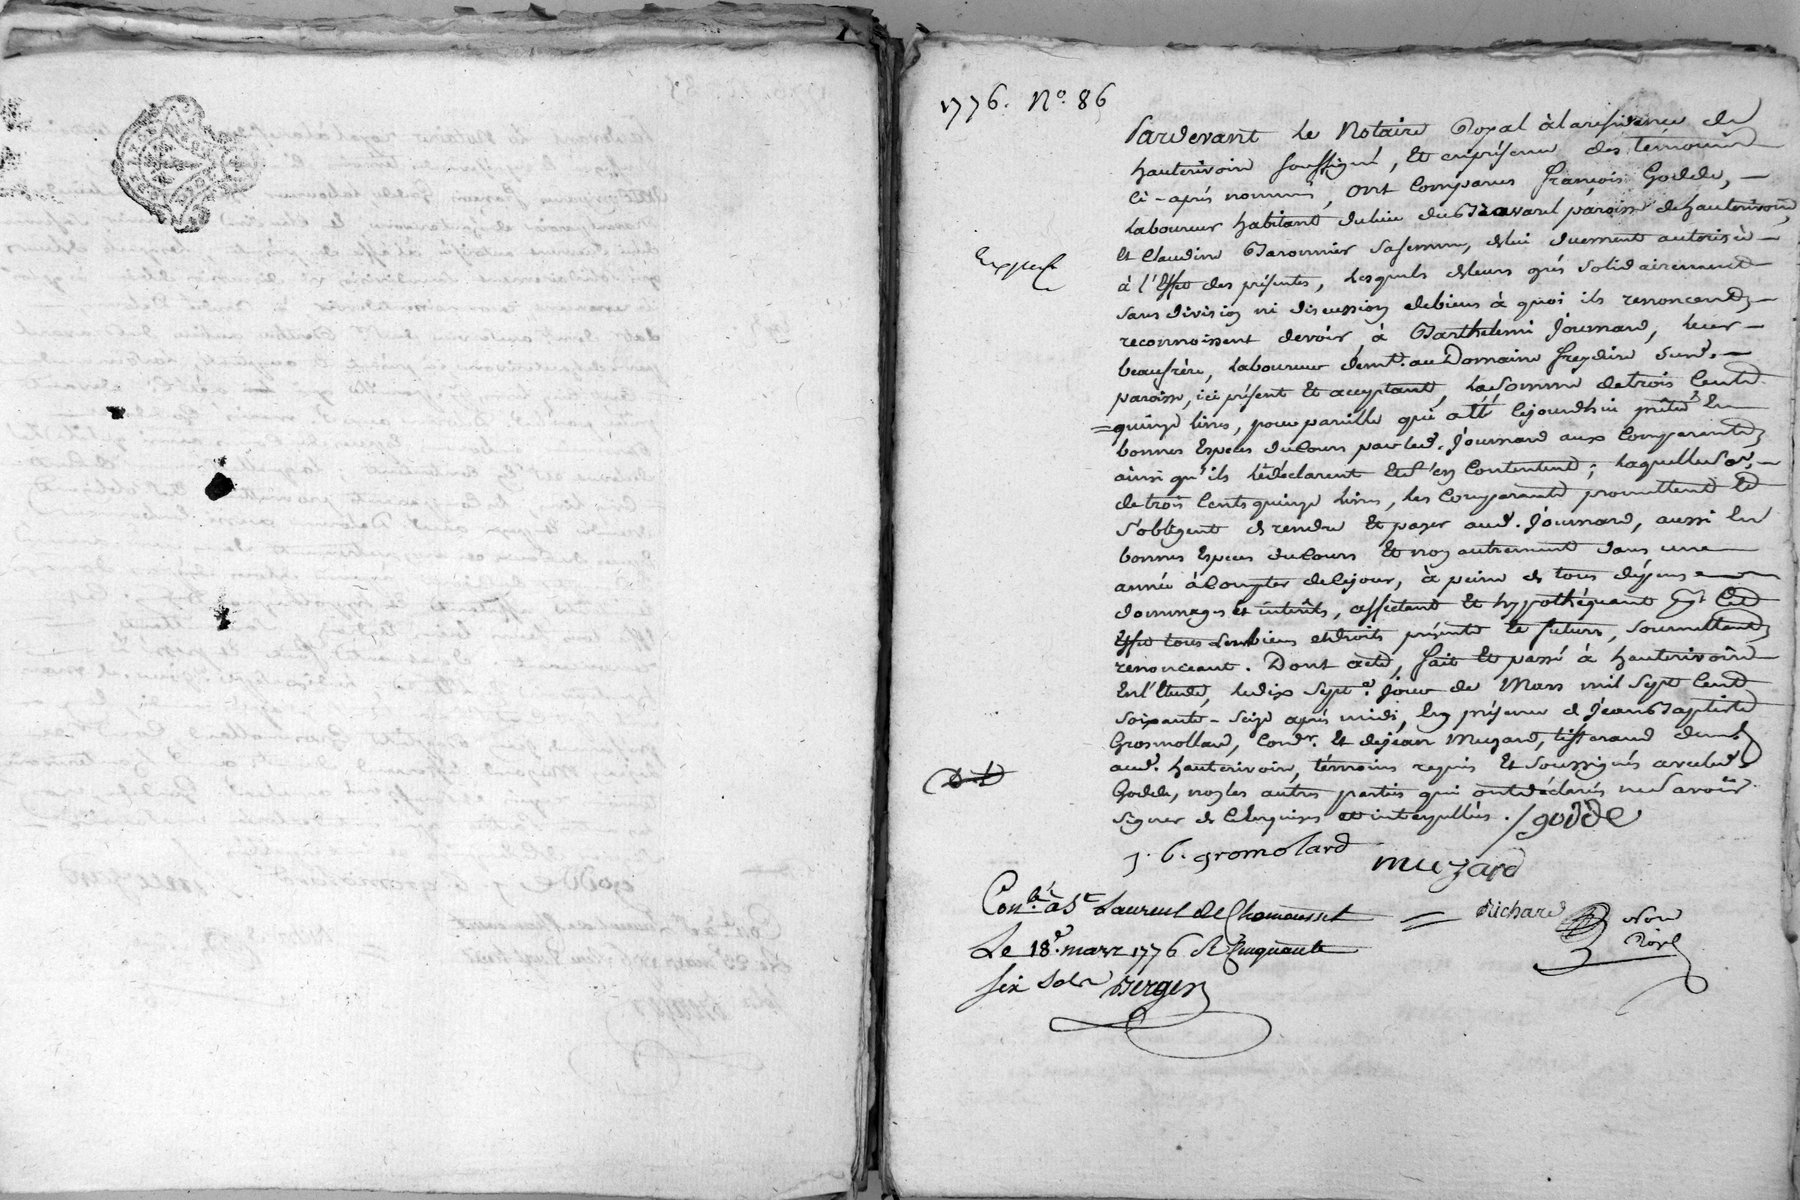 1776. No. 86
Pardevant le Notaire Royal à la residence de
hauterivoire soussigné, et en présence des témoins
ci-après nommés, ont comparus françois Godde,
laboureur habitant du lieu du Bravard paroisse de hauterivoire,
et Claudine Baronnier sa femme, de lui duement autorisée
Expedié
à l'effet des présentes, lesquels de leurs grés solidairement
sans division ni discussion de biens à quoi ils renoncent,
reconnoissent devoir, à Barthelemi Journard, leur
beaufrère, laboureur demt. au Domaine freydière susd.
paroisse, ici présent et acceptant, la somme de trois cents
quinze livres, pour pareille qui a été cejourdhui prêtée en
bonnes especes du cours par led. Journard aux comparants
ainsi qu'ils le déclarent et s'en contentent ; laquelle som.
de trois cents quinze livres, les comparants promettent et
s'obligent de rendre et payer aud. Journard, aussi en
bonnes especes du cours et non autrement dans une
année à compter de ce jour, à peine de tous dépens
dommages et intérêts, affectant et hypothéquant pr. cet
effet tous leurs biens et droits présents et futurs, soumettant,
renonceant. Dont acte, fait et passé à hauterivoire
en l'Etude, le dix sept.e jour de Mars mil sept cent
soixante-seize après midi, en présence de Jean Baptiste
Grosmollard, Cordr. et de Jean Muzard, tisserand demt.
aud. hauterivoire, témoins requis et soussignés avec led.
Godde, non les autres parties qui ont déclarés ne savoir
signer de ce enquises et interpellées. / godde
j. b. gromolard muzard
Con.lé à St Laurent de Chamousset Richard Nore
Le 18e. mars 1776 R Cinquante Royl
six sols Berger